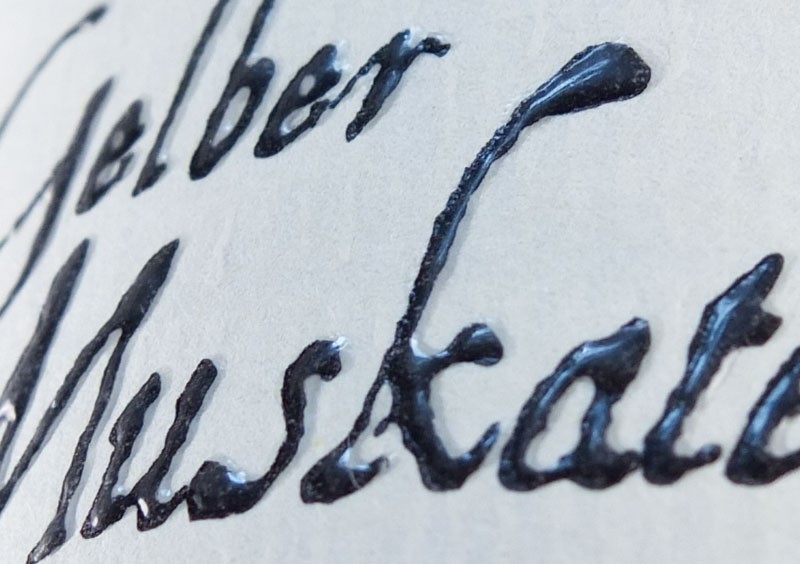 Gelber
Muskate